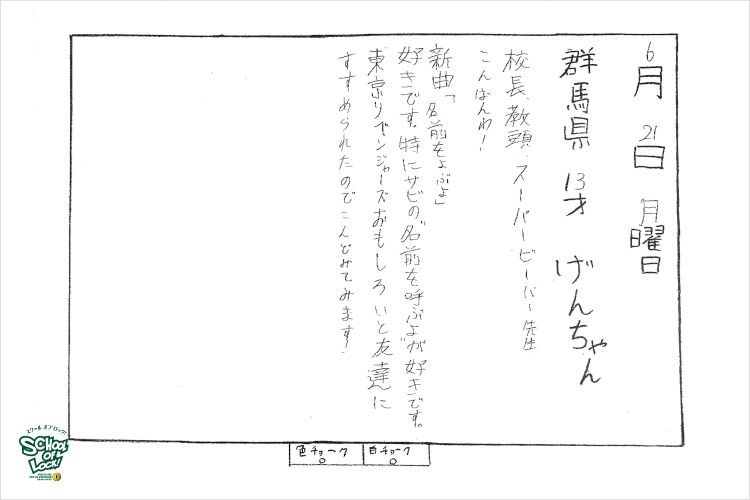 6月21日 月曜日
群馬県 13才 げんちゃん
校長、教頭、スーパービーバー先生
こんばんわ!
新曲「名前をよぶよ」
好きです。特にサビの"名前を呼ぶよ"が好きです。
東京リベンジャーズおもしろいと友達に
すすめられたのでこんどみてみます!
色チョーク
白チョーク
スクール オブ ロック!
SCHOOL OF LOCK!